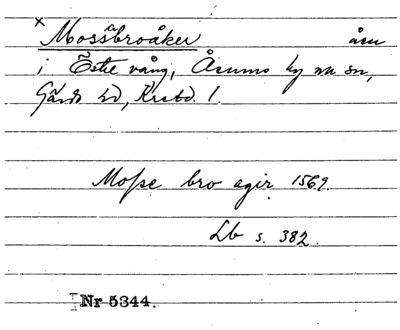 × Mossåbroåker åns
i Östre vång, Åsumo by m sn,
Gärds hd, Krstd. l.
Mosse bro agir 1569.
Lb s. 382.
Nr 5344.